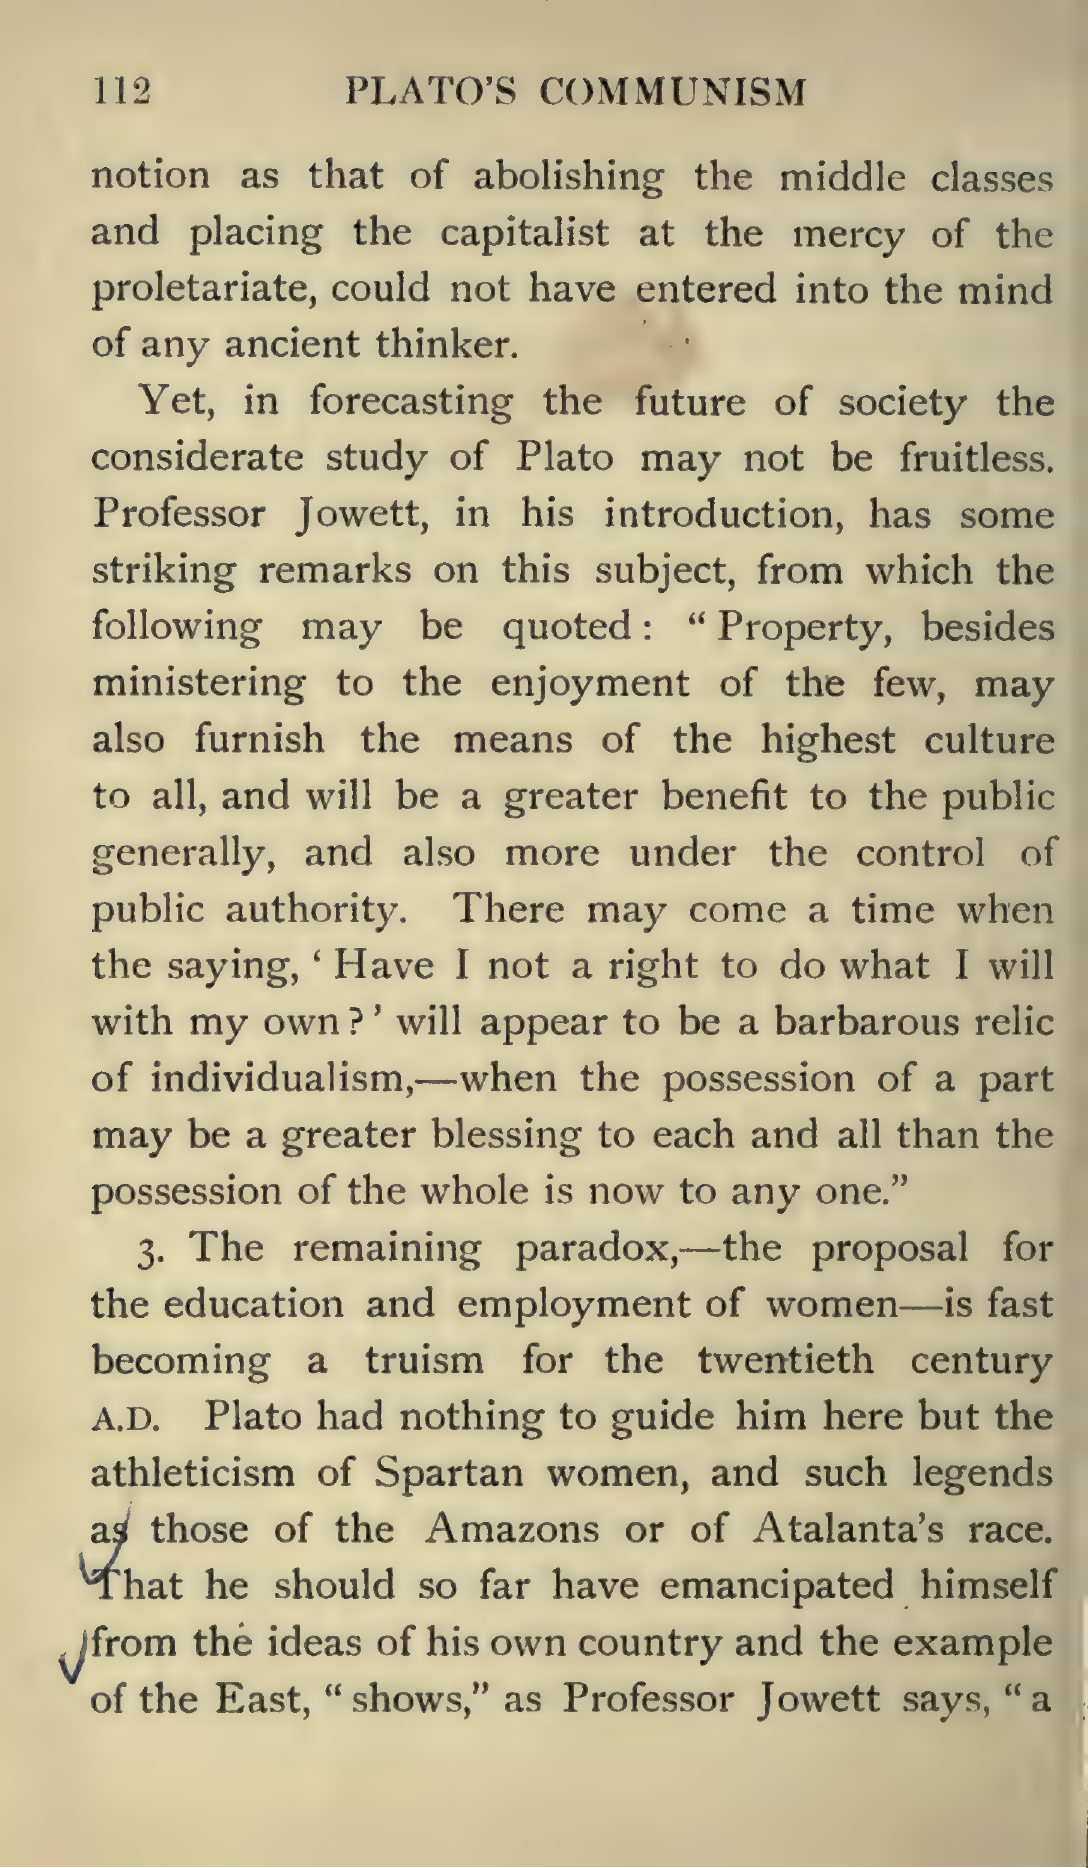 112 PLATO'S COMMUNISM
notion as that of abolishing the middle classes
and placing the capitalist at the mercy of the
proletariate, could not have entered into the mind
of any ancient thinker.
Yet, in forecasting the future of society the
considerate study of Plato may not be fruitless.
Professor Jowett, in his introduction, has some
striking remarks on this subject, from which the
following may be quoted: “Property, besides
ministering to the enjoyment of the few, may
also furnish the means of the highest culture
to all, and will be a greater benefit to the public
generally, and also more under the control of
public authority. There may come a time when
the saying, ‘Have I not a right to do what I will
with my own?’ will appear to be a barbarous relic
of individualism,—when the possession of a part
may be a greater blessing to each and all than the
possession of the whole is now to any one.”
3. The remaining paradox,—the proposal for
the education and employment of women—is fast
becoming a truism for the twentieth century
A.D. Plato had nothing to guide him here but the
athleticism of Spartan women, and such legends
as those of the Amazons or of Atalanta's race.
That he should so far have emancipated himself
from the ideas of his own country and the example
of the East, “shows,” as Professor Jowett says, “a